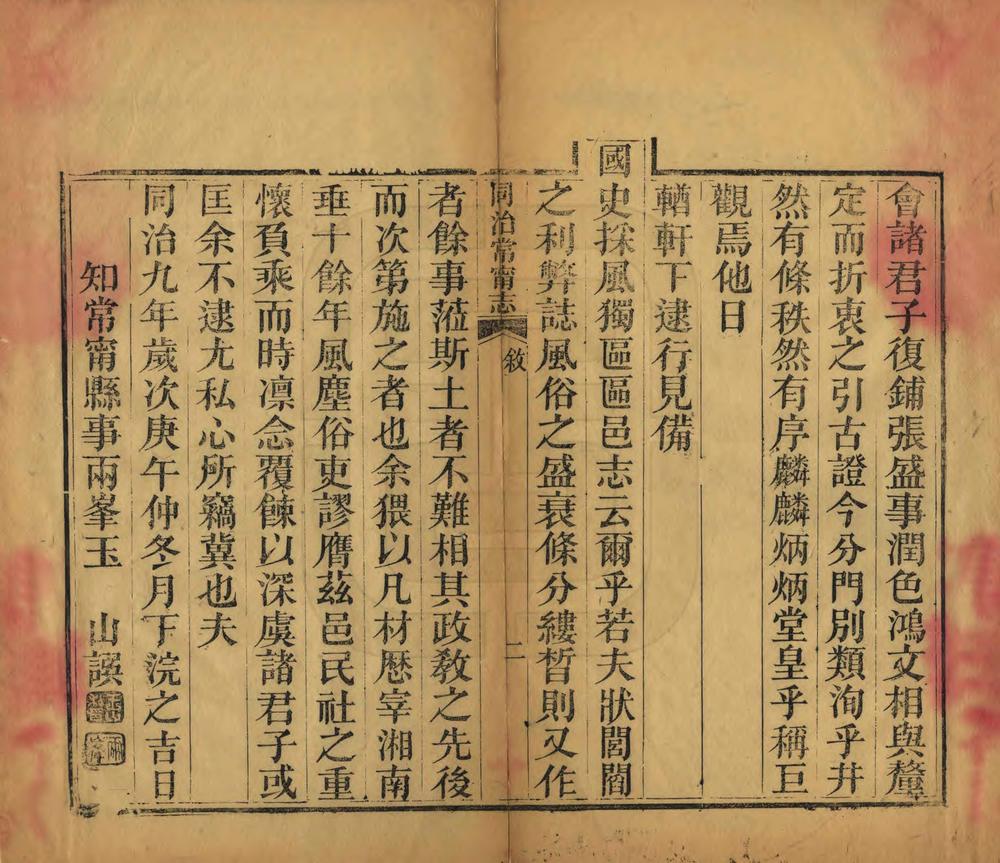 會諸君子復鋪張盛事潤色鴻文相與釐
定而折衷之引古證今分門別類洵乎井
然有條秩然有序麟麟炳炳堂皇乎稱巨
觀焉他日
輶軒下逮行見備
國史採風獨區區邑志云爾乎若夫狀閭閻
之利弊誌風俗之盛衰條分縷晳則又作
同治常甯志 敘 二
者餘事蒞斯土者不難相其政敎之先後
而次第施之者也余猥以凡材歷宰湘南
垂十餘年風塵俗吏謬膺茲邑民社之重
懷負乘而時凛念覆餗以深虞諸君子或
匡余不逮尤私心所竊冀也夫
同治九年歲次庚午仲冬月下浣之吉日
知常甯縣事兩峯玉 山譔